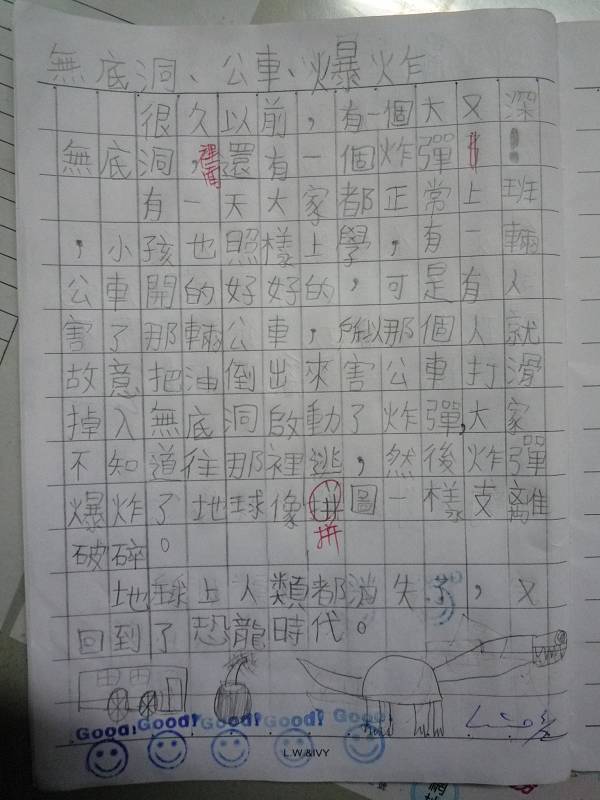 無底洞、公車、爆炸
很久以前,有一個大又深
無底洞,裡面還有一個炸彈!
有一天大家都正常上班
,小孩也照樣上學,有一輛
公車開的好好的,可是有人
害了那輛公車,所以那個人就
故意把油倒出來害公車打滑
掉入無底洞啟動了炸彈,大家
不知道往那裡逃,然後炸彈
爆炸了地球像拼圖一樣支離
拼
破碎。
地球上人類都消失了,又
回到了恐龍時代。
Good! Good! Good! Good! Good!
L.W.&IVY